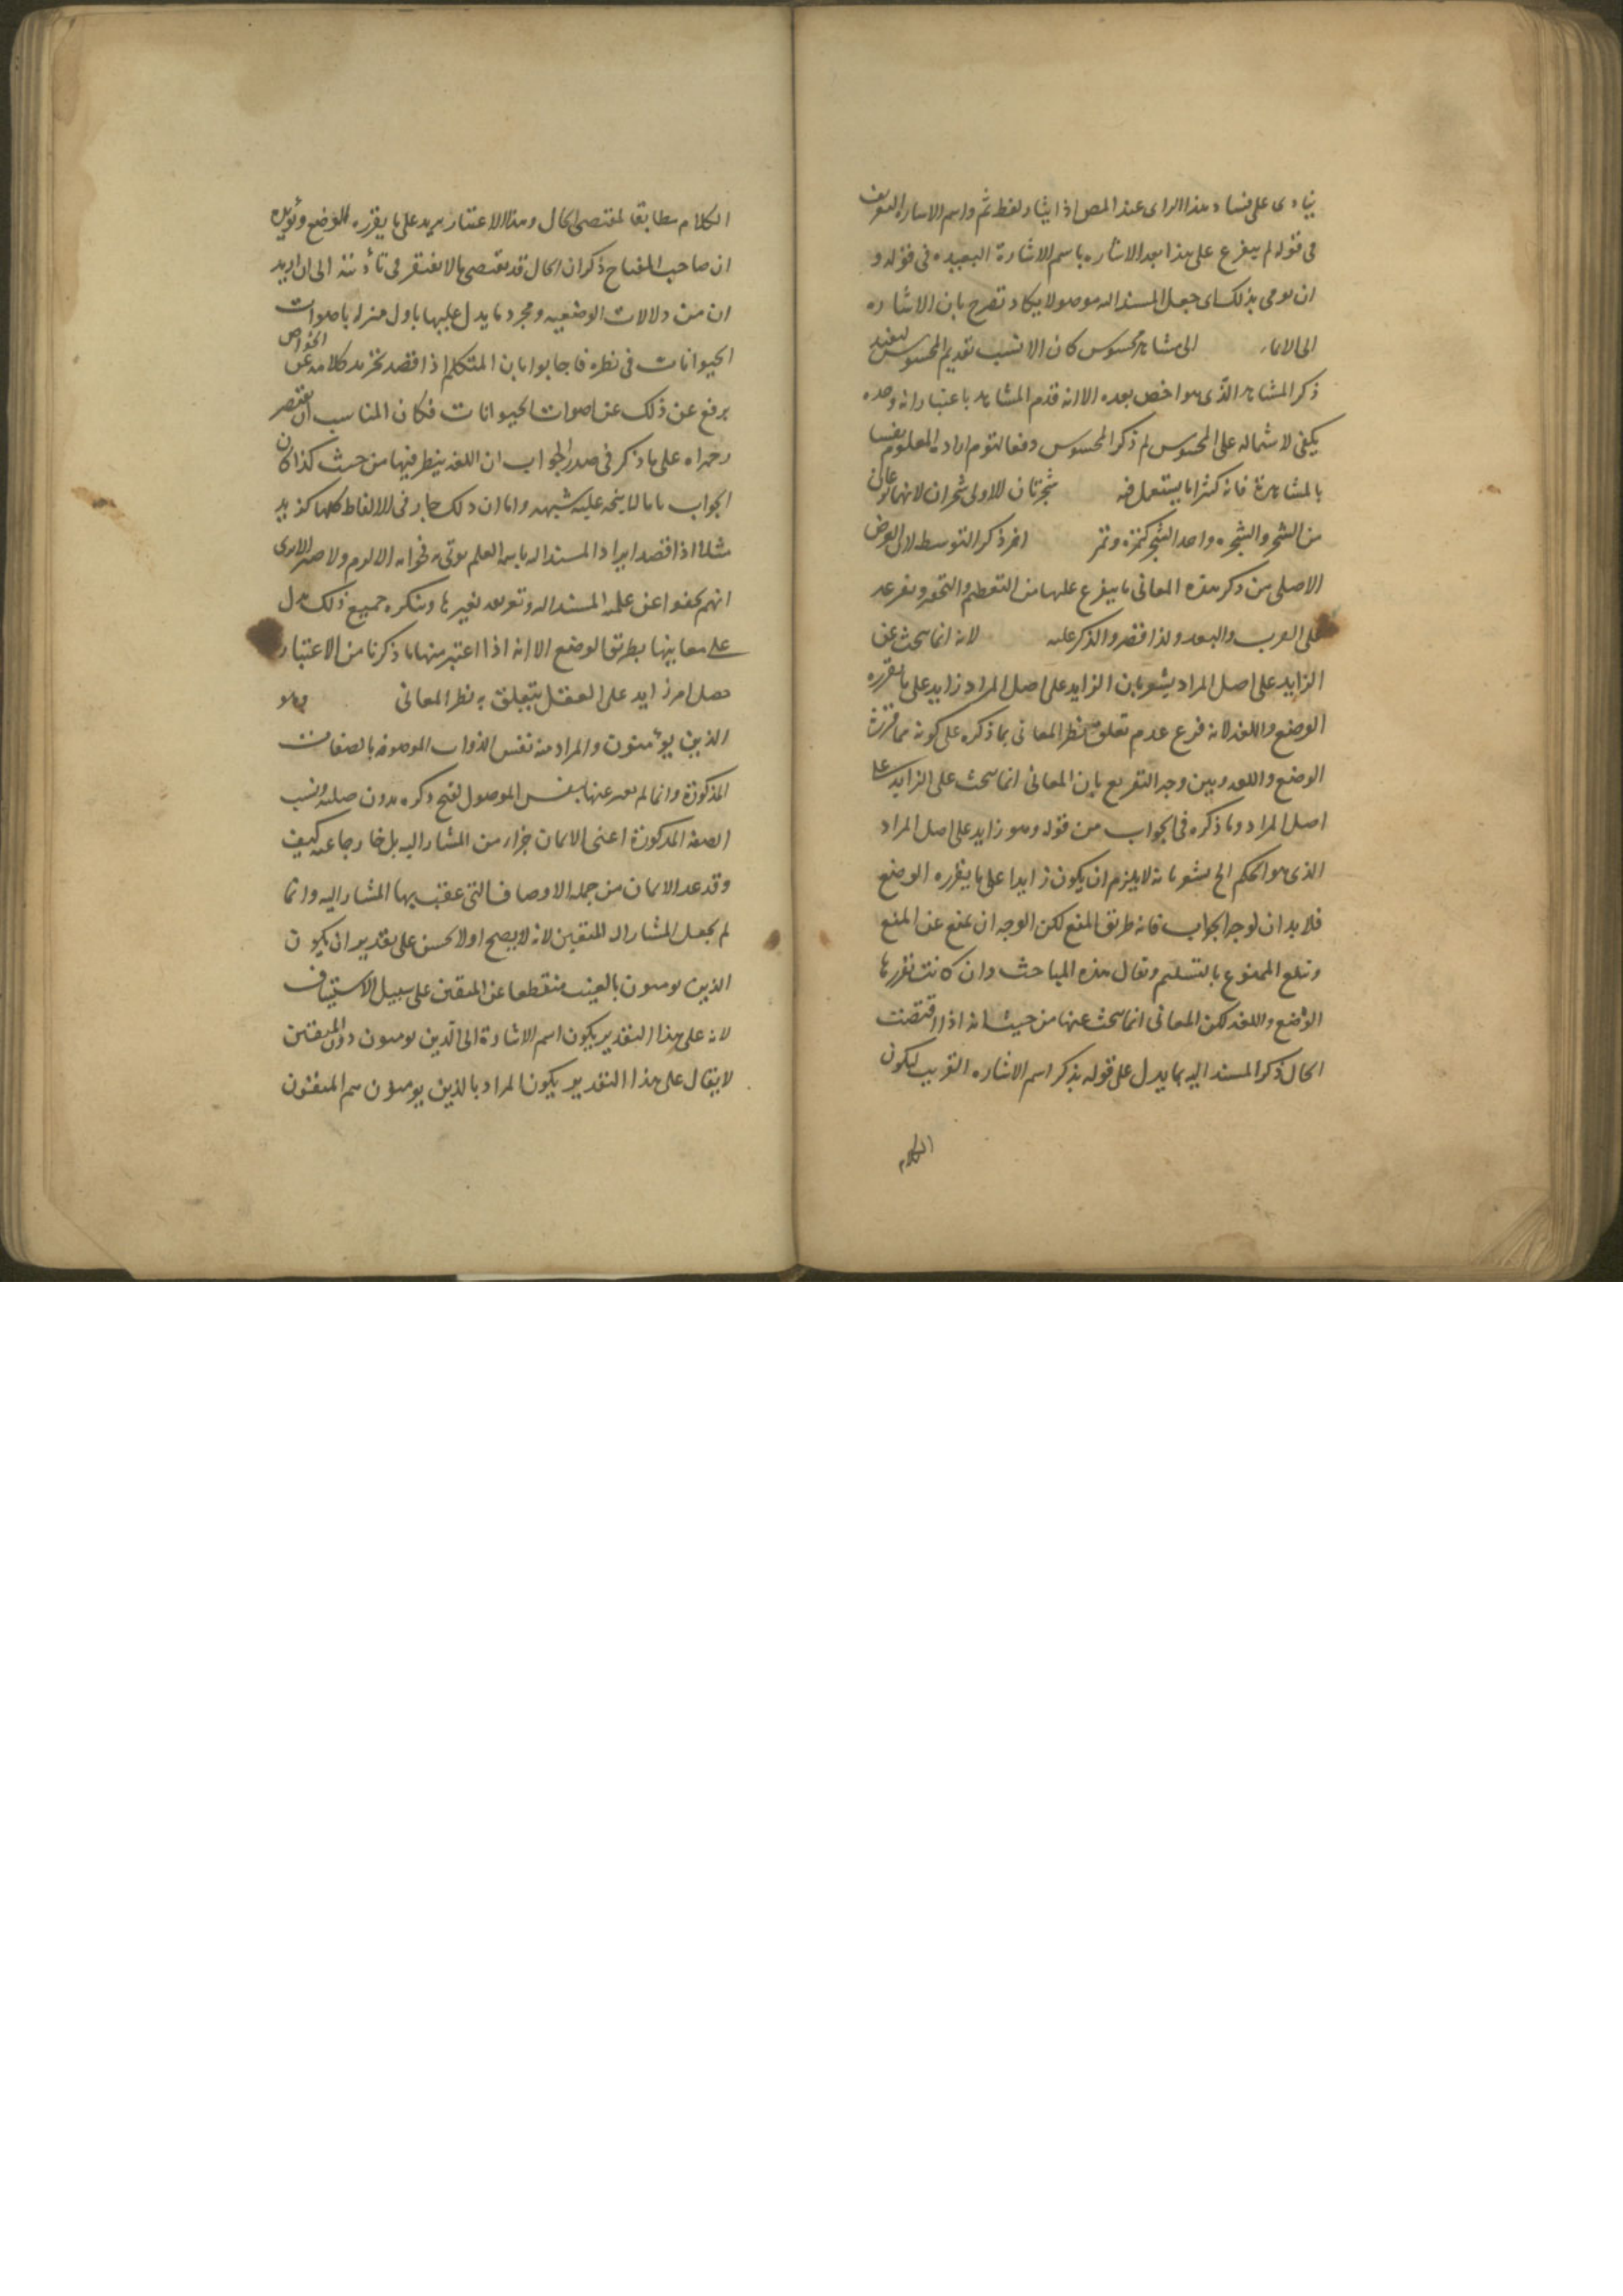 ينادى على فساد هذا الراى عند المص اذا يثار لفظ ثم واسم الاشاره التعريف
فى قوله لم يتفرع على هذا بعد الاشاره باسم الاشارة البعيده فى قوله و
ان يومى بذلك اى جعل المسند اليه موصولا يكاد تصرح بان الاشاره
الى الايماء الى مشاهد محسوس كان الانسب تقديم المحسوس ليفيد
ذكر المشاهد الذى هو اخص بعده الا انه قدم المشاهد باعتبار انه وحده
يكفى لاشتماله على المحسوس ثم ذكر المحسوس دفعا لتوهم اراده المعلوم يقينا
بالمشاهدة فانه كثيرا ما يستعمل فيه شجرتان للاولى شجران لانهما نوعان
من الشجر والشجره واحد الشجر كتمرة وتمر اخر ذكر التوسط لان الغرض
الاصلى من ذكر هذه المعانى ما يتفرع عليها من التعظيم والتحقير وتفرعه
على القرب والبعد ولذا اقتصر والذكر عليه لانه انما يبحث عن
الزايد على اصل المراد يشعر بان الزايد على اصل المراد زايد على ما تقرره
الوضع واللغه لانه فرع عدم تعلق نظر المعانى بما ذكره على كونه مما قررته
الوضع واللغه وبين وجه التفريع بان المعانى انما يبحث على الزايد على
اصل المراد وما ذكره فى الجواب من قوله وهو زايد على اصل المراد
الذى هو الحكم الخ يشعر بانه لا يلزم ان يكون زايدا على ما يقرره الوضع
فلا بد ان يوجه الجواب فانه طريق المنع لكن الوجه ان يمنع عن المنع
وتلع الممنوع بالتسليم ويقال هذه المباحث وان كانت تقررها
الوضع واللغه لكن المعانى انما يبحث عنها من حيث انه اذا اقتضت
الحال ذكر المسند اليه بما يدل على قوله بذكر اسم الاشاره القريب ليكون
الكلام
الكلام مطابقا لمقتضى الحال وهذا الاعتبار يزيد على ما يقرره الوضع ويؤيده
ان صاحب المفتاح ذكر ان الحال قد يقتضى ما لا يفتقر فى تأديته الى ان ازيد
ان من دلالات الوضعيه ومجرد ما يدل عليها باول منزله باصوات
الحيوانات فى نظره فاجابوا بان المتكلم اذا قصد تجريد كلامه عن الخواص
يرفع عن ذلك عن اصوات الحيوانات فكان المناسب ان يقتصر
رحمه الله على ما ذكر فى صدر الجواب ان اللغه ينظر فيها من حيث كذا كان
الجواب تاما لا يتجه عليه شبهه واما ان ذلك جار فى الالفاظ كلها كزيد
مثلا اذا قصد ايراد المسند اليه باسمه العلم يؤتى به فجوابه الالزم ولا ضير الا يرى
انهم بحثوا عن علمية المسند اليه وتعريفه بغيرها وتنكيره جميع ذلك يدل
على معانيها بطريق الوضع الا انه اذا اعتبر منها ما ذكرنا من الاعتبار
حصل امر زايد على العقل يتعلق به نظر المعانى وهو
الذين يؤمنون والمراد منه نفس الذوات الموصوفه بالصفات
المذكورة وانما لم يعبر عنها بنفس الموصول لقبح ذكره بدون صلته وليست
الصفه المذكورة اعنى الايمان جزاء من المشار اليه بل خارجا عنه كيف
وقد عد الايمان من جمله الاوصاف التى عقب بها المشار اليه وانما
لم يجعل المشار اليه المتقين لانه لا يصح او لا يحسن على تقدير ان يكون
الذين يؤمنون بالغيب منقطعا عن المتقين على سبيل الاستيناف
لانه على هذا التقدير يكون اسم الاشارة الى الذين يومنون دون المتقين
لا يقال على هذا التقدير يكون المراد بالذين يومنون هم المتقون